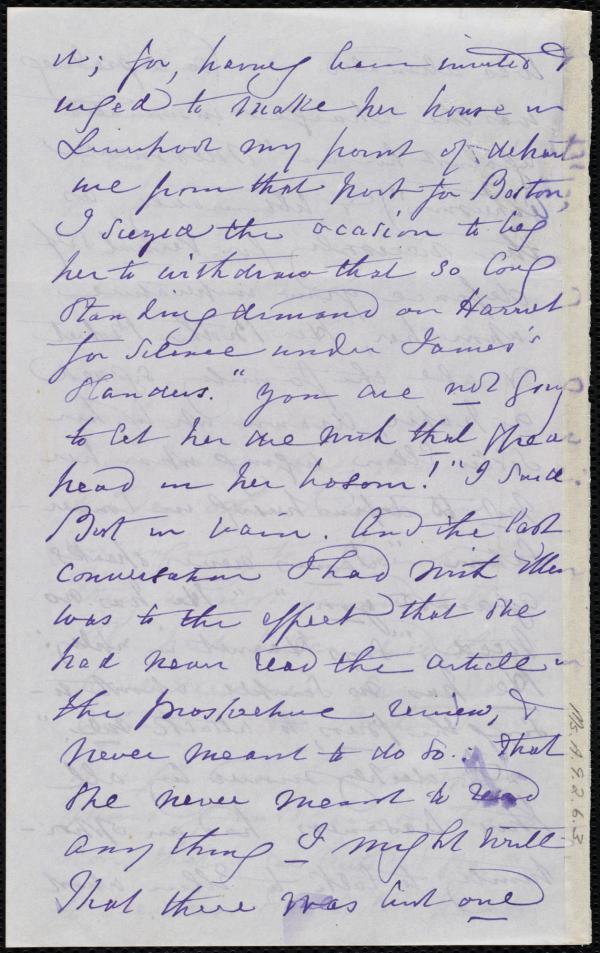 it; for, having been invited &
urged to make her house in
Liverpool my point of depart
ure from that port for Boston,
I siezed the ocasion to beg
her to withdraw that so long
standing demand on Harriet
for silence under James's
slanders. "You are not going
to let her die with that spear
head in her bosom!" I said
But in vain. And the last
conversation I had with Ellen
was to the effect that she
had never read the article in
the prospective review, &
never meant to do so: That
she never meant to read
anything I might write
That there was but one
MS.A.9.2.6.3